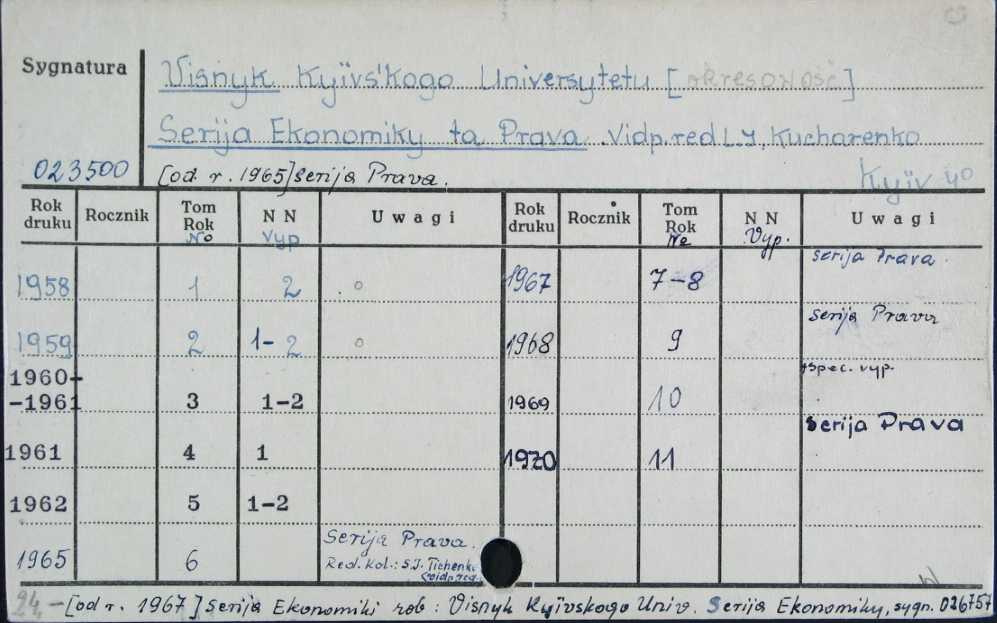 Sygnatura
Visnyk Kyïvs'kogo Universytetu [okresowość]
Serija Ekonomiky ta Prava. Vidp.red L.J. Kucharenko
023500 [od r. 1965] Serija Prava. Kyïv 40
Rok druku Rocznik Tom Rok No N N Vyp Uwagi Rok druku Rocznik Tom Rok No N N Vyp. Uwagi
1958 1 2 1967 7-8 serija Prava.
1959 2 1-2 1968 9 Serija Prava
1960-
-1961 3 1-2 1969 10 spec. vyp.
1961 4 1 1970 11 Serija Prava
1962 5 1-2
1965 6 Serija Prava.
Red. kol.: S.I. Tichenk
24,- [od r. 1967] Serija Ekonomiki rob: Visnyk Kyïvskogo Univ. Serija Ekonomiky, sygn. 026757